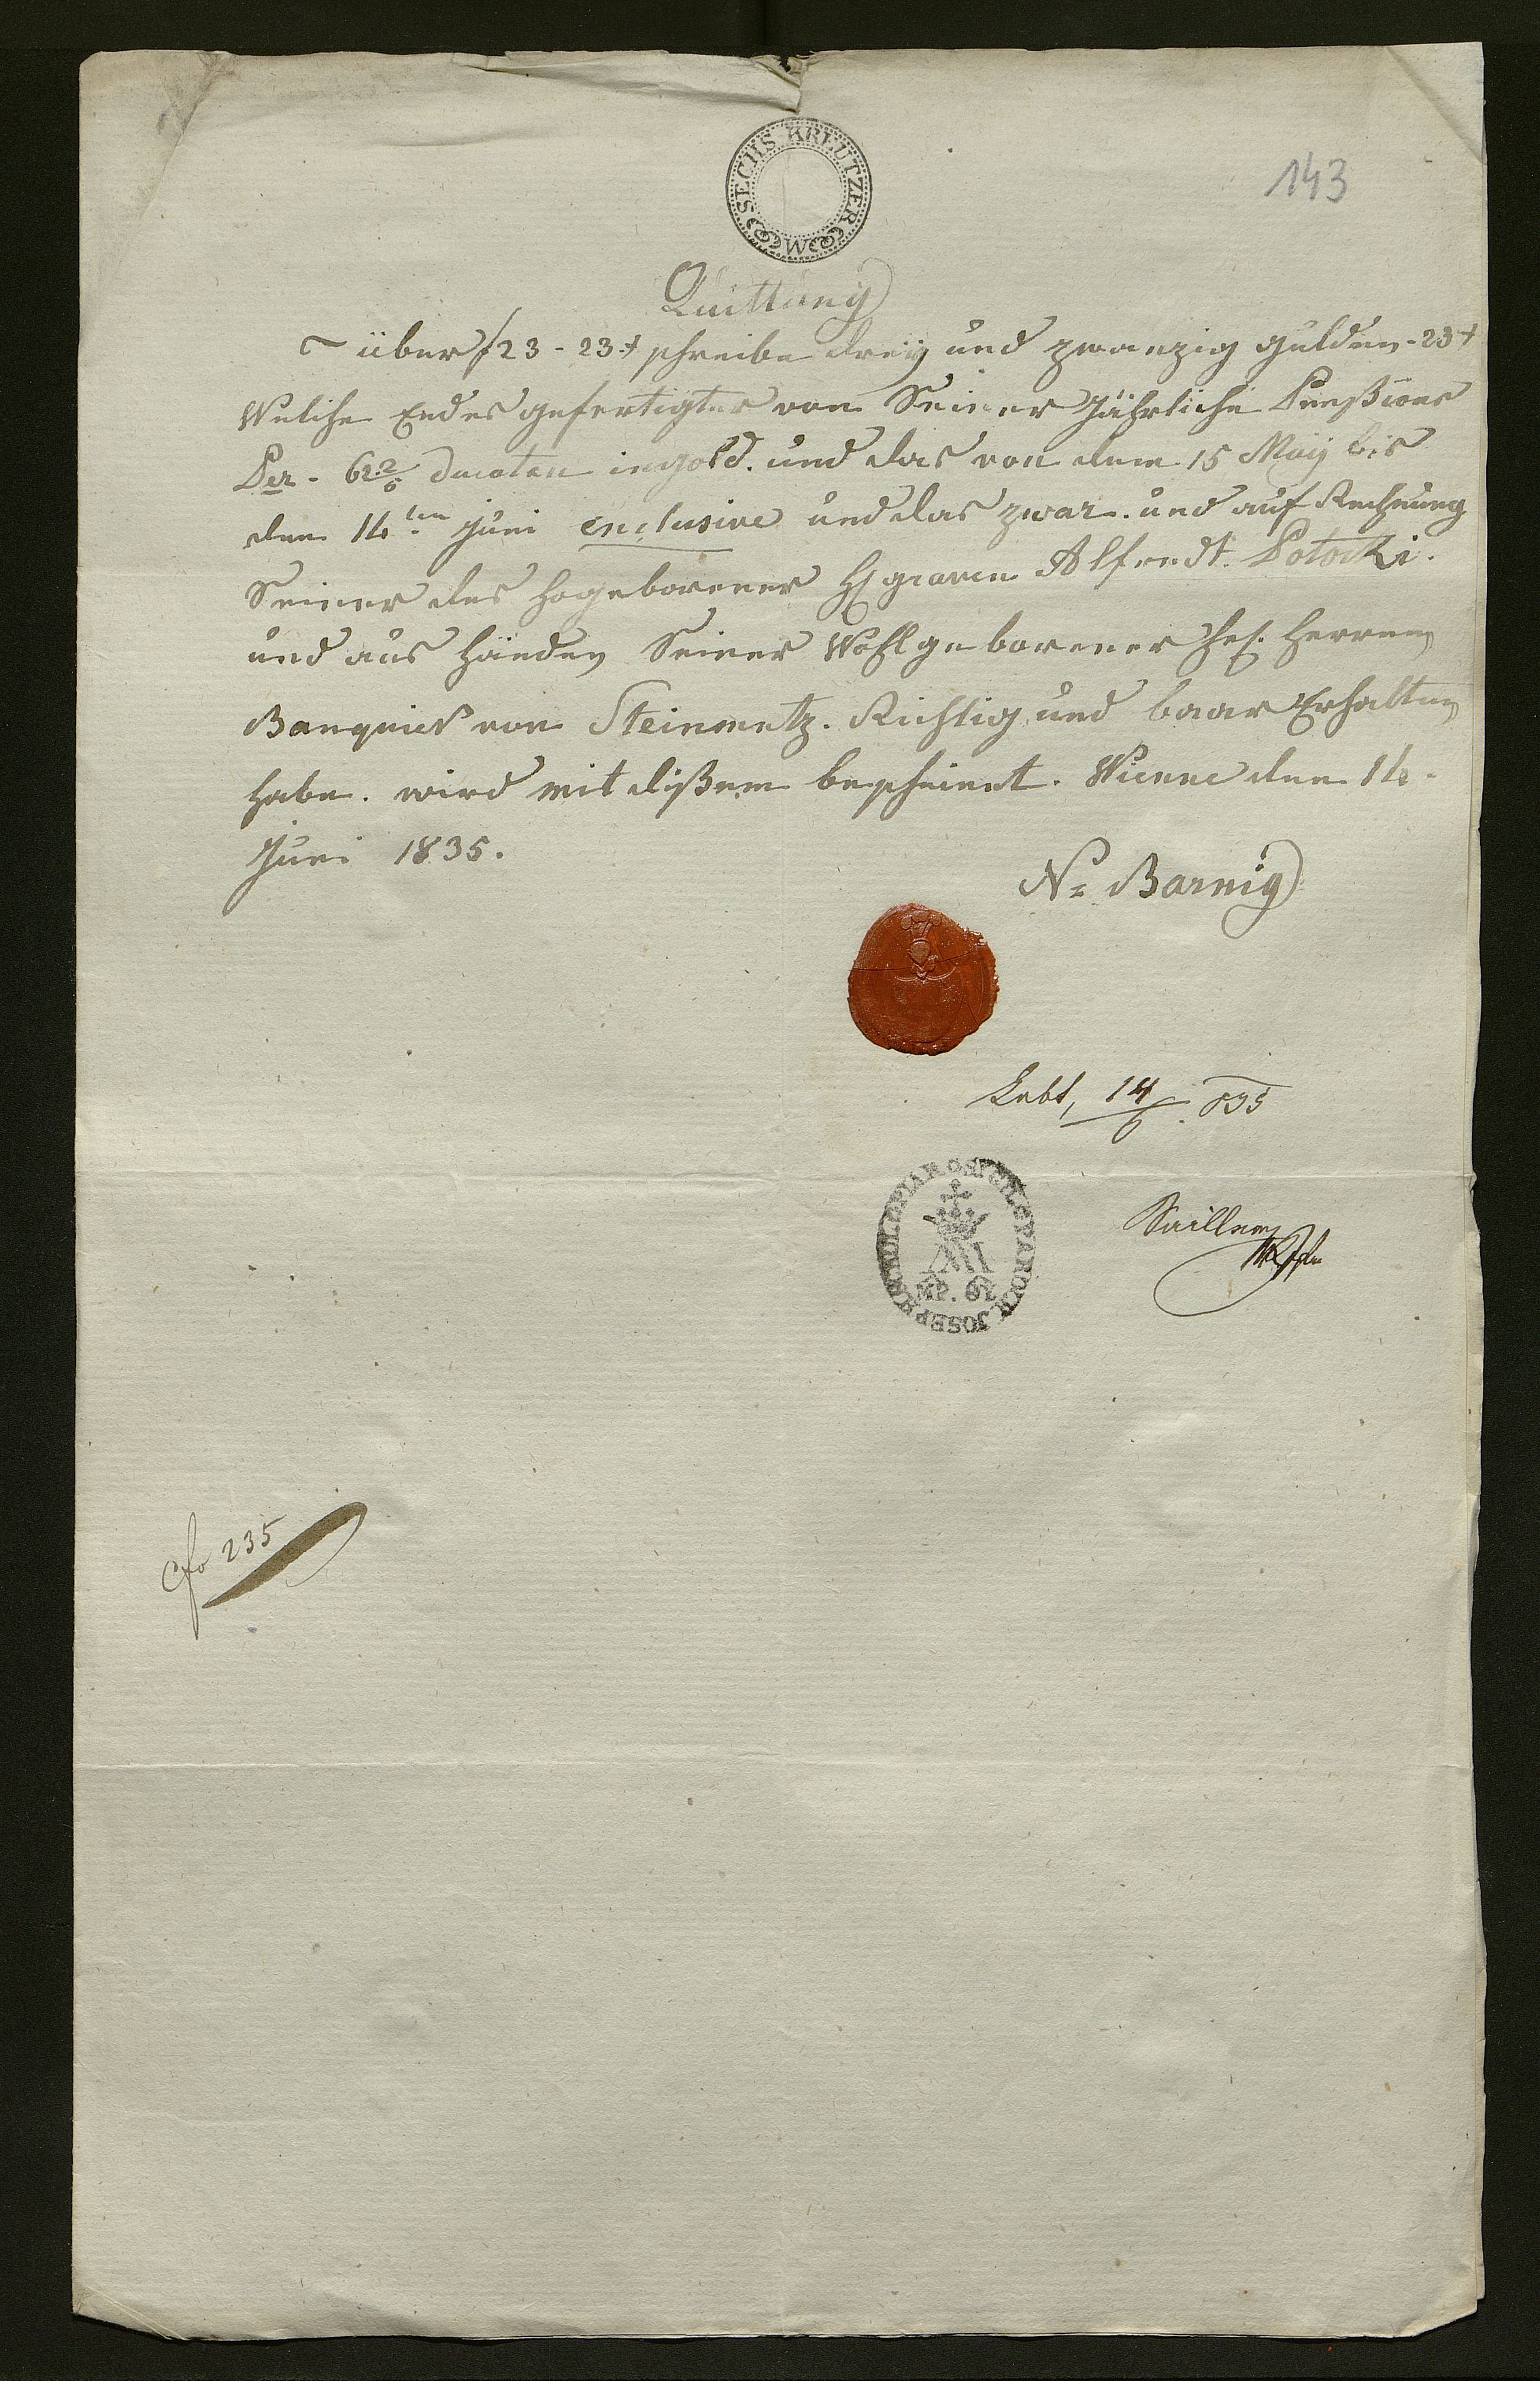 SECHS KREUTZER
CM
143
Quittung
über f 23 - 23 x schreibe dreÿ und zwanzig gulden - 23 x
Welche Endes gefertigter von Seiner Jährliche Penßions
Per - 62 2/6 ducaten in gold. und das von dem 15 Maÿ bis
den 14ten Juni enclusive und das zwar. und auf Rechnung
Seiner des Hogeborener H graven Alfredt. Potocki.
und aus Händen Seiner Wohlgeborener Herren
Banquier von Steinmetz. Richtig und baar Erhalten
habe. wird mit dißem bescheint. Wienne den 14.
Juni 1835.
N. Barnig
Lebt, 14/6. 835
fo 235